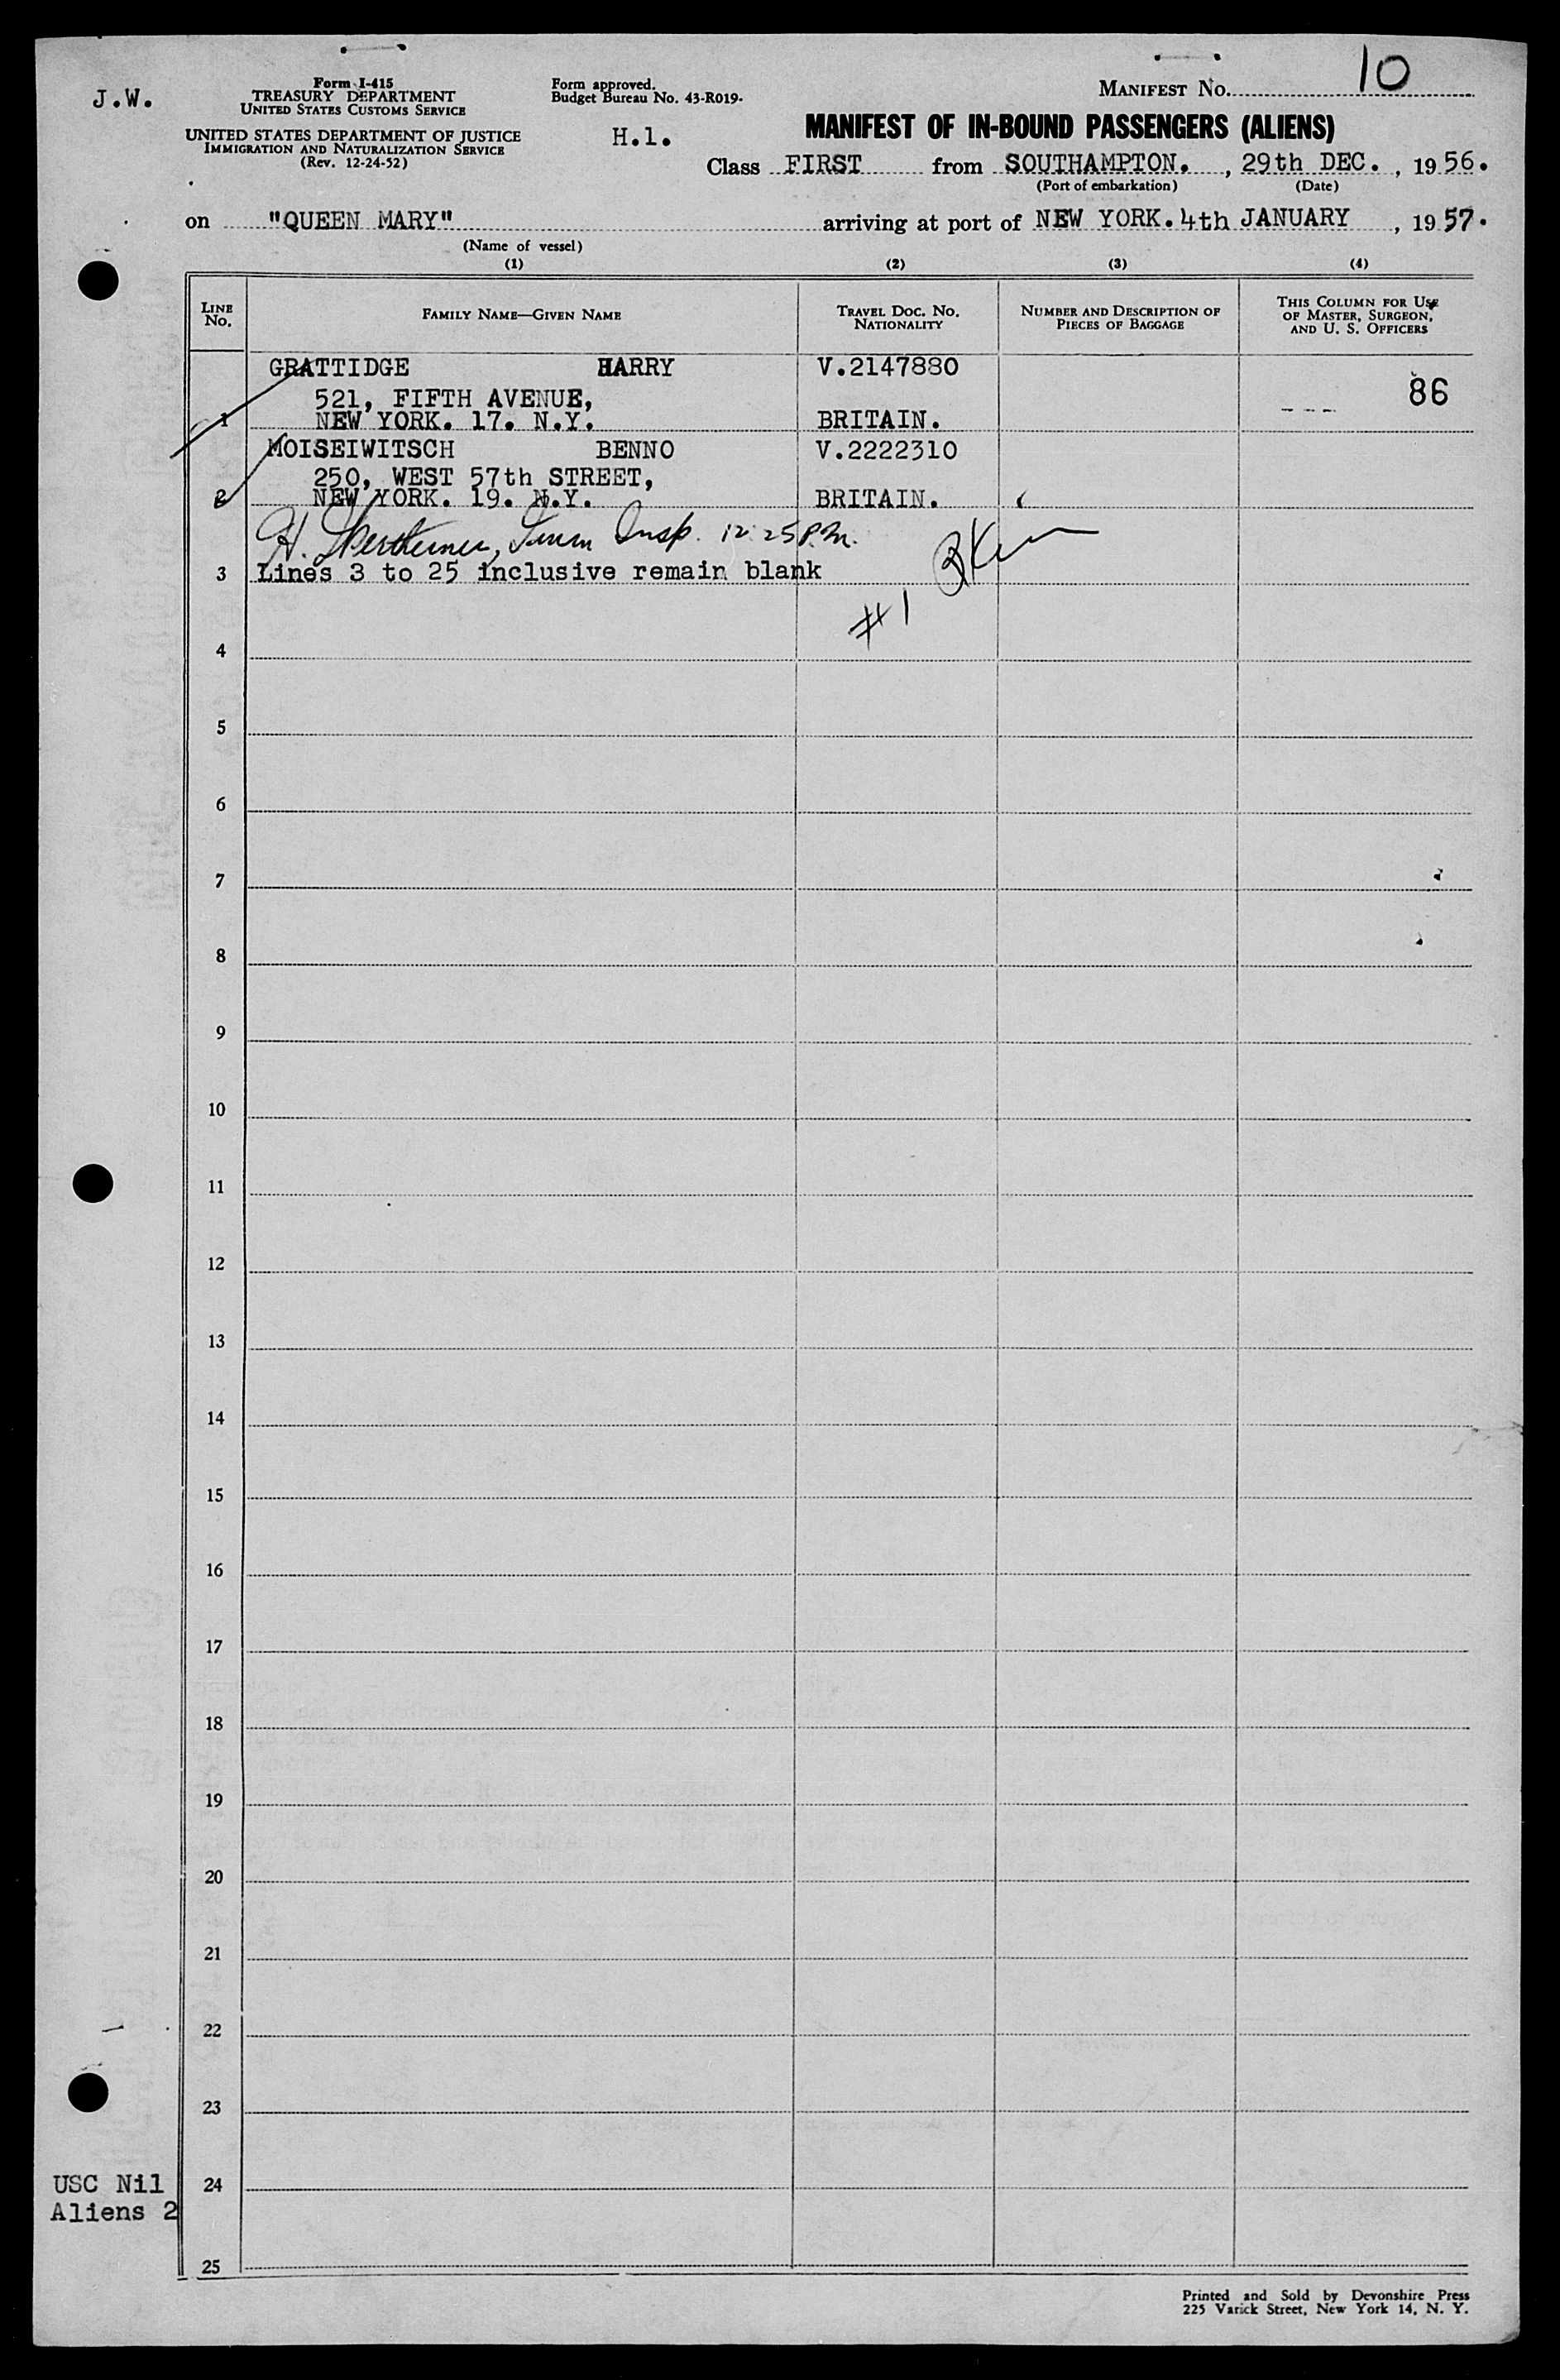 J.W.
Form I-415
TREASURY DEPARTMENT
UNITED STATES CUSTOMS SERVICE
UNITED STATES DEPARTMENT OF JUSTICE
IMMIGRATION AND NATURALIZATION SERVICE
(Rev. 12-24-52)
Form approved.
Budget Bureau No. 43-R019.
H.1.
MANIFEST NO. 10
MANIFEST OF IN-BOUND PASSENGERS (ALIENS)
Class FIRST from SOUTHAMPTON. , 29th DEC. , 19 56.
(Port of embarkation) (Date)
on "QUEEN MARY" arriving at port of NEW YORK. 4th JANUARY , 19 57.
(Name of vessel)
(1) (2) (3) (4)
LINE NO. FAMILY NAME—GIVEN NAME TRAVEL DOC. NO. NATIONALITY NUMBER AND DESCRIPTION OF PIECES OF BAGGAGE THIS COLUMN FOR USE OF MASTER, SURGEON, AND U. S. OFFICERS
GRATTIDGE HARRY V.2147880
521, FIFTH AVENUE, 86
1 NEW YORK. 17. N.Y. BRITAIN.
MOISEIWITSCH BENNO V.2222310
250, WEST 57th STREET,
2 NEW YORK. 19. N.Y. BRITAIN.
H. Insp. 12:25 P.M.
3 Lines 3 to 25 inclusive remain blank
#1
4
5
6
7
8
9
10
11
12
13
14
15
16
17
18
19
20
21
22
23
24
25
USC Nil
Aliens 2
Printed and Sold by Devonshire Press
225 Varick Street, New York 14, N. Y.